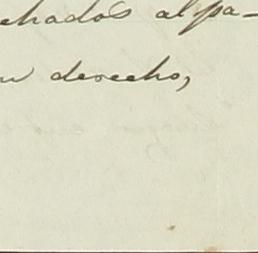 chados al pa-
u derecho,